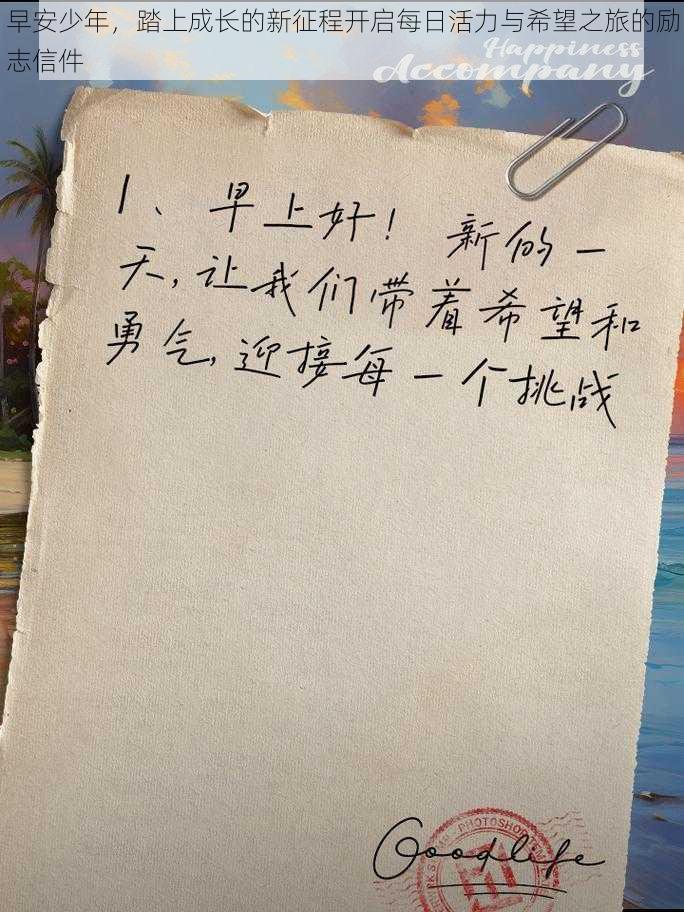 早安少年，踏上成长的新征程开启每日活力与希望之旅的励
志信件
Happiness
Accompany
1、早上好！新的一
天，让我们带着希望和
勇气，迎接每一个挑战
PHOTOSHOP
Goodlife